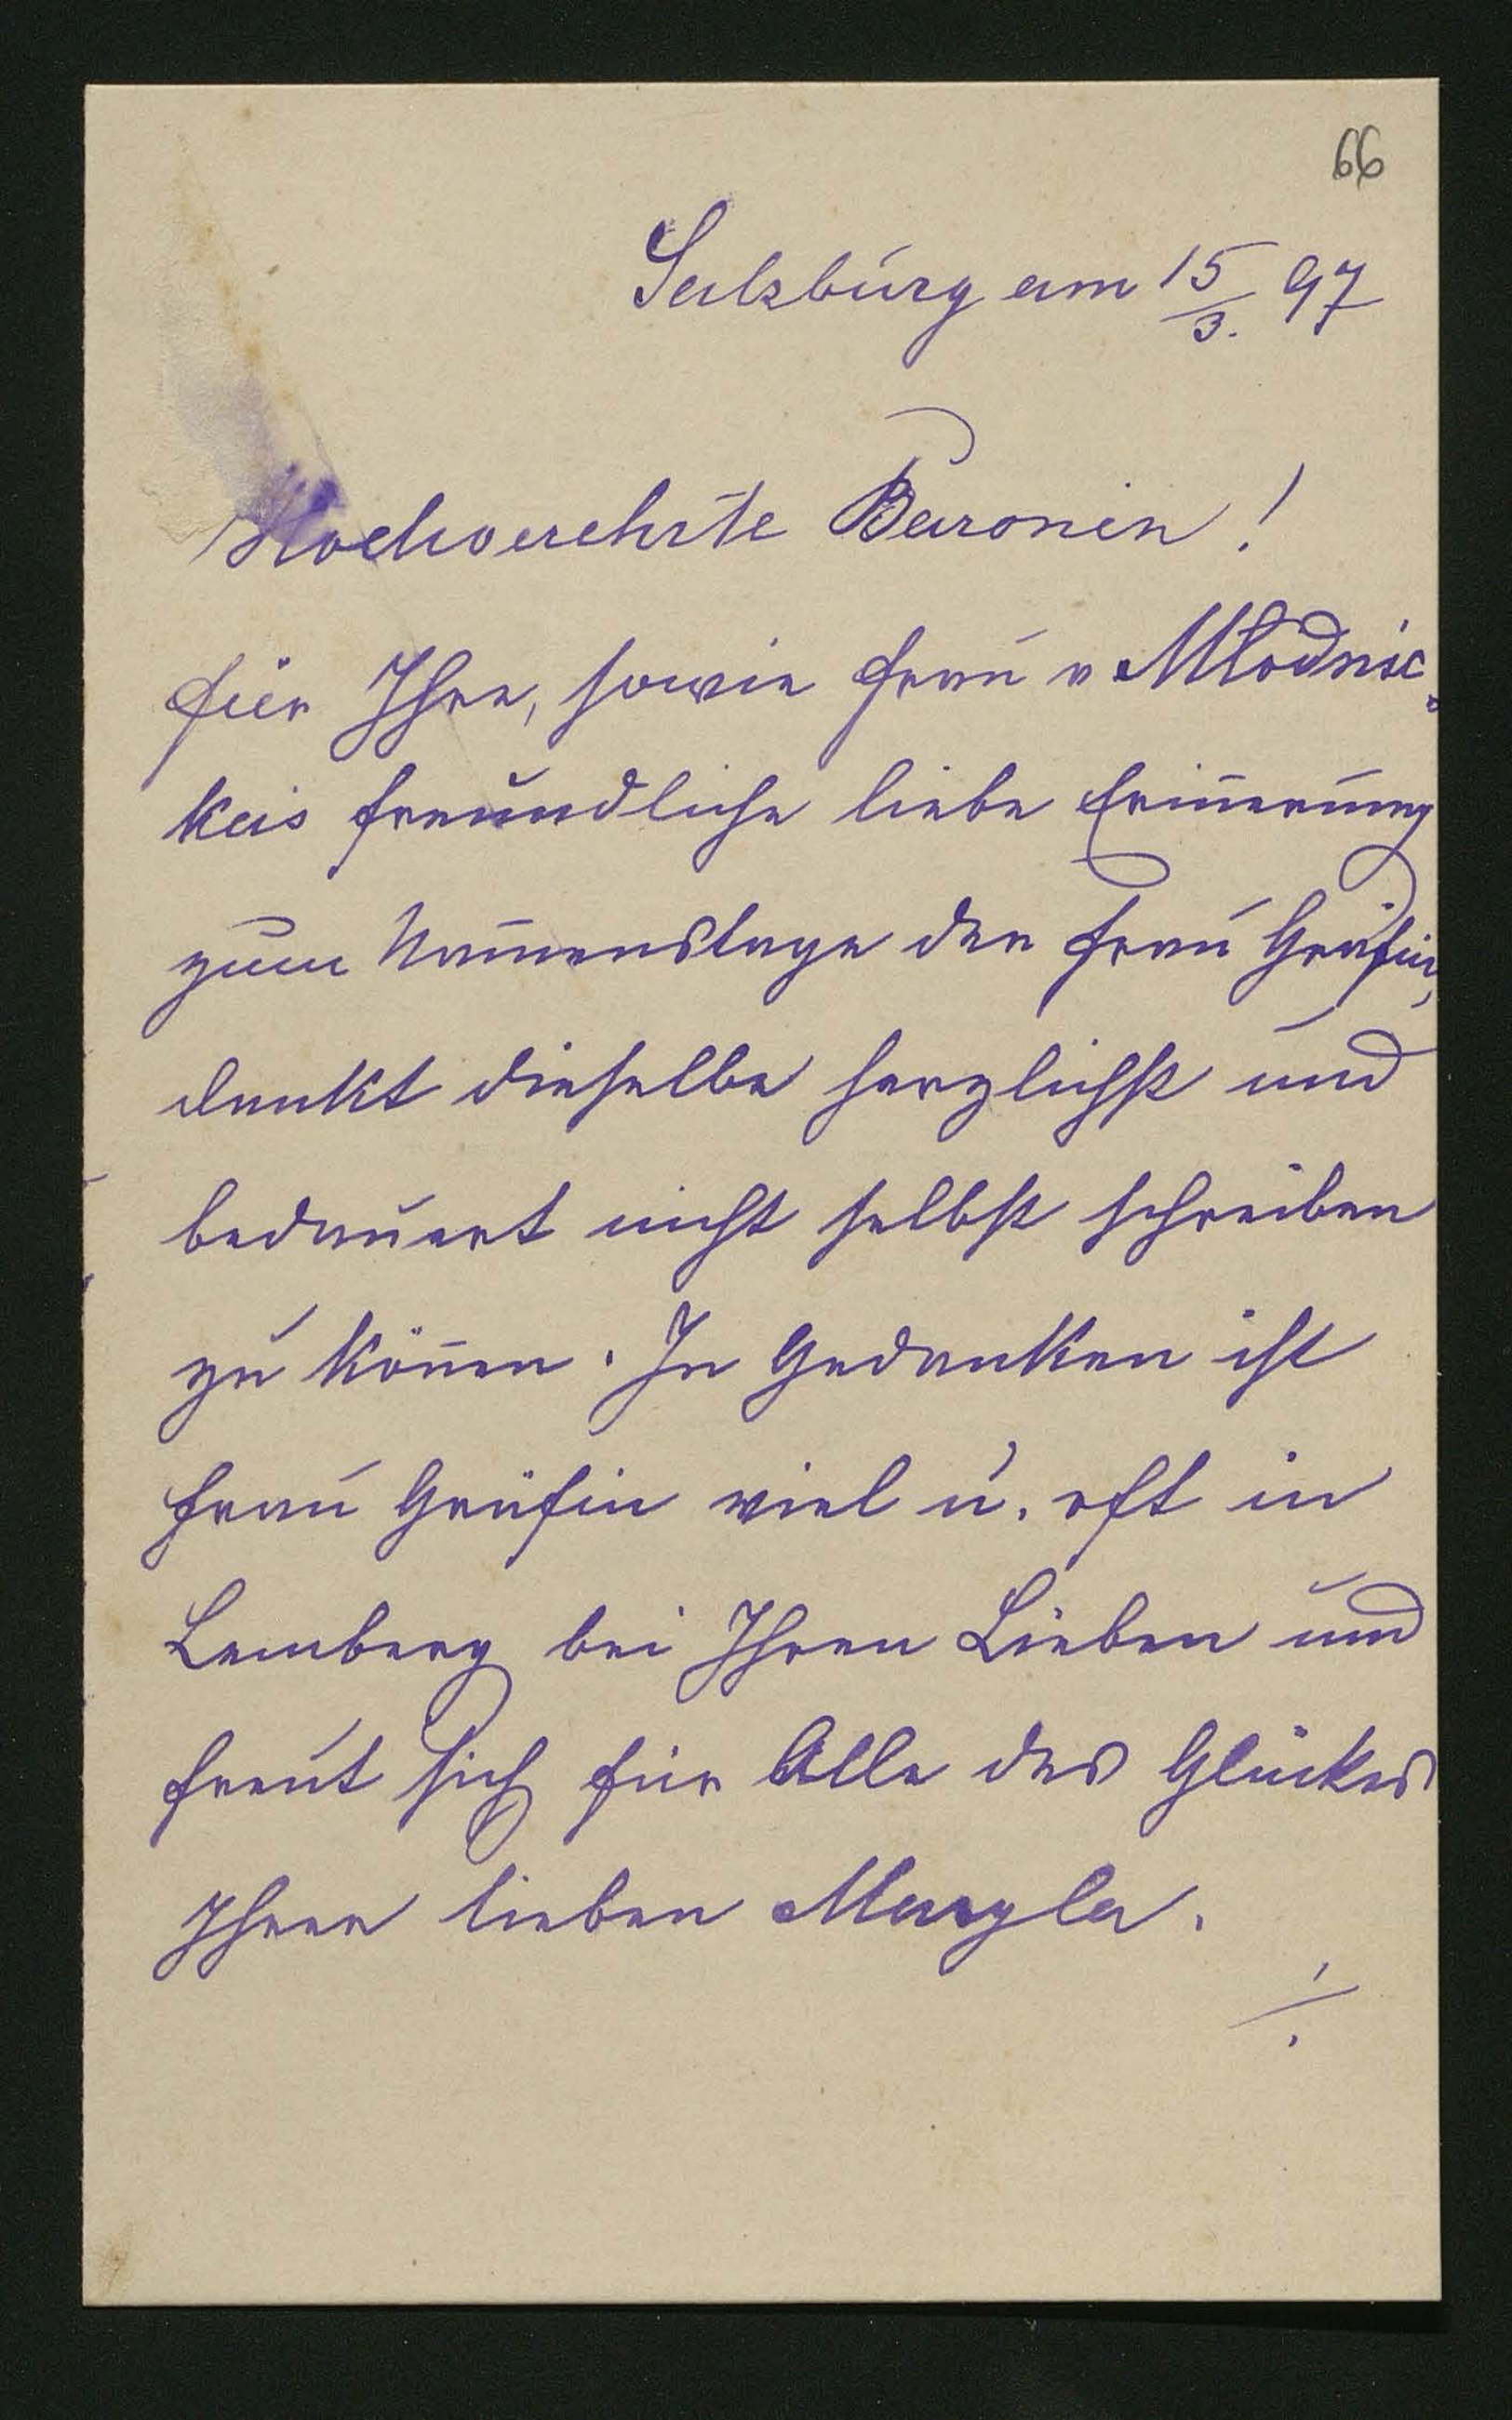 66
Salzburg am 15/3. 97
Hochverehrte Baronin!
für Ihre, sowie Frau v Młodnic-
keis freundliche liebe Erin̄erung
zum Namenstage der Frau Gräfin,
dankt dieselbe herzlichst und
bedauert nicht selbst schreiben
zu kön̄en. In Gedanken ist
Frau Gräfin viel u. oft in
Lemberg bei Ihren Lieben und
freut sich für Alle des Glückes
Ihrer lieben Maryla.
./.